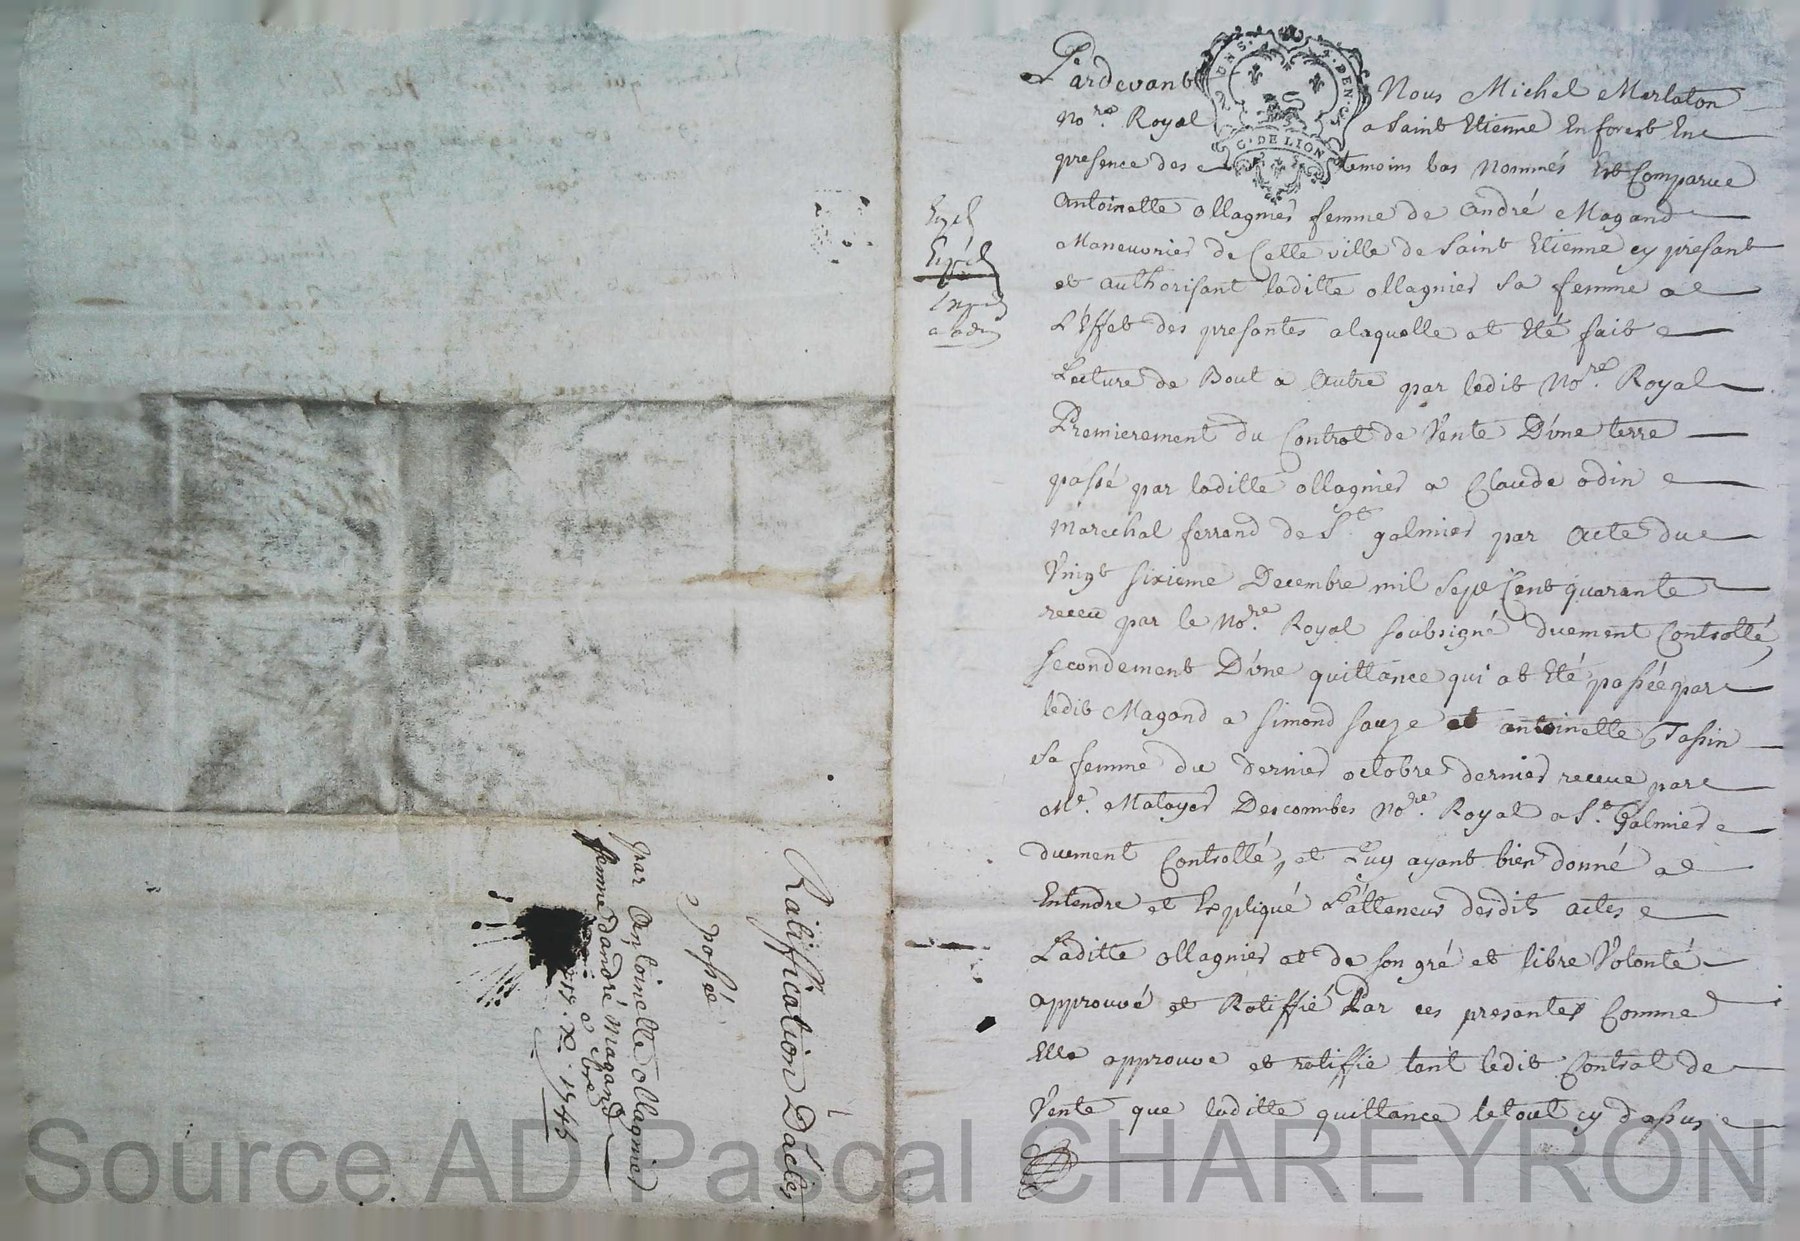 Pardevant Nous Michel Merlaton
No.re Royal a Saint Etienne En forest En
presence des temoins bas Nommés Est Comparue
Antoinette ollagnier femme de André Magand
Maneuvrier de Cette ville de Saint Etienne cy presant
et authorisant laditte ollagnier sa femme a
L'Effet des presantes a laquelle at Eté fait
Lecture de Bout a Autre par ledit No.re Royal
Premierement du Contrat de Vente D'une terre
passé par laditte ollagnier a Claude odin
Marechal ferrand de St. galmier par Acte du
Vingt sixieme Decembre mil Sept Cent quarante
receu par le No.re Royal soubsigné duement Controllé,
Secondement D'une quittance qui at Eté passée par
ledit Magand a Simond Sauze et antoinette Tassin
Sa femme du dernier octobre dernier receue par
Me. Matayer Descombes No.re Royal a St. Galmier
duement Controllé, et Luy ayant bien donné a
Entendre et Expliqué L'atteneur desdits actes
Laditte ollagnier at de son gré et libre Volonté
approuvé et Ratiffié Par ces presantes Comme
Elle approuve et ratiffie tant ledit Contrat de
Vente que laditte quittance le tout cy dessus
Expd
Expéd
Ratiffication D'actes
passée
par Antoinette ollagnier
femme d'andré Magand
a
1745
G. DE LION
Source AD Pascal CHAREYRON